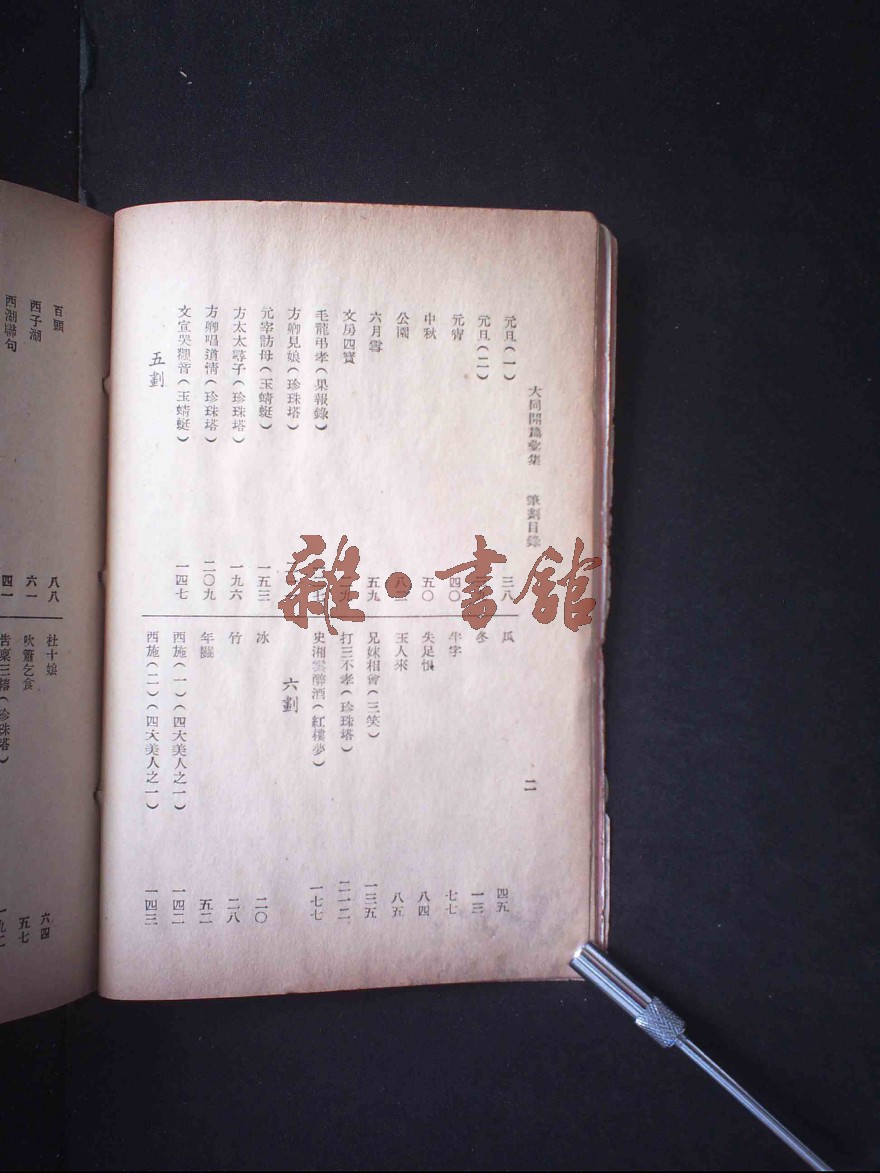 大同開篇彙集　筆劃目錄　二
元旦(一)　三八
元旦(二)
元宵　四〇
中秋　五〇
公園　八二
六月雪　五九
文房四寶
毛龍弔孝(果報錄)
方卿見娘(珍珠塔)
元宰訪母(玉蜻蜓)　一五三
方太太尋子(珍珠塔)　一九六
方卿唱道情(珍珠塔)　二〇九
文宣哭觀音(玉蜻蜓)　一四七
五劃
瓜　四五
冬　一三
牛字　七七
失足恨　八四
玉人來　八五
兄妹相會(三笑)　一三五
打三不孝(珍珠塔)　二一二
史湘雲醉酒(紅樓夢)　一七七
六劃
冰　二〇
竹　二八
年關　五二
西施(一)(四大美人之一)　一四二
西施(二)(四大美人之一)　一四三
百頭　八八
西子湖　六一
西湖聯句　四一
杜十娘　六四
吹簫乞食　五七
告稟三樁(珍珠塔)
雜·書館